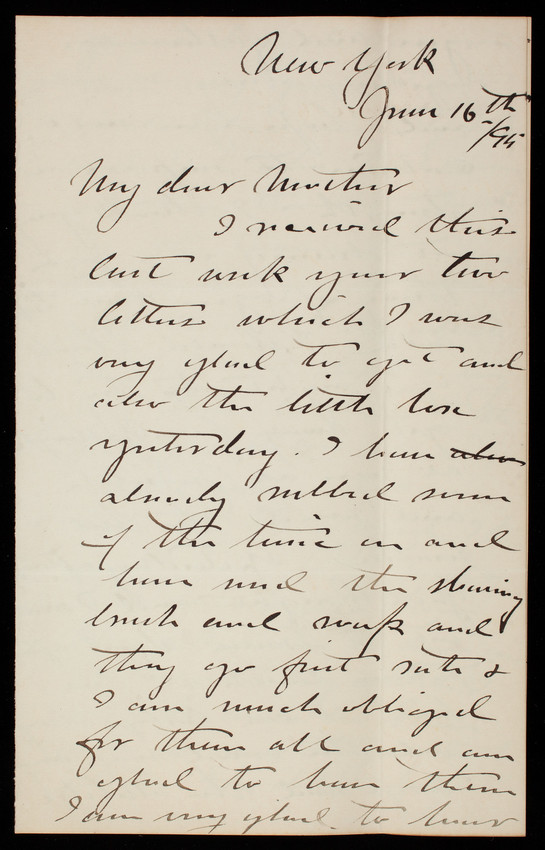 New York
June 16th
/95
My dear Mother
I received this
last week your two
letters which I was
very glad to get and
also the little box
yesterday. I have also
already rubbed some
of the tonic on and
have used the shaving
brush and soap and
they go first rate &
I am much obliged
for them all and am
glad to have them
I am very glad to hear